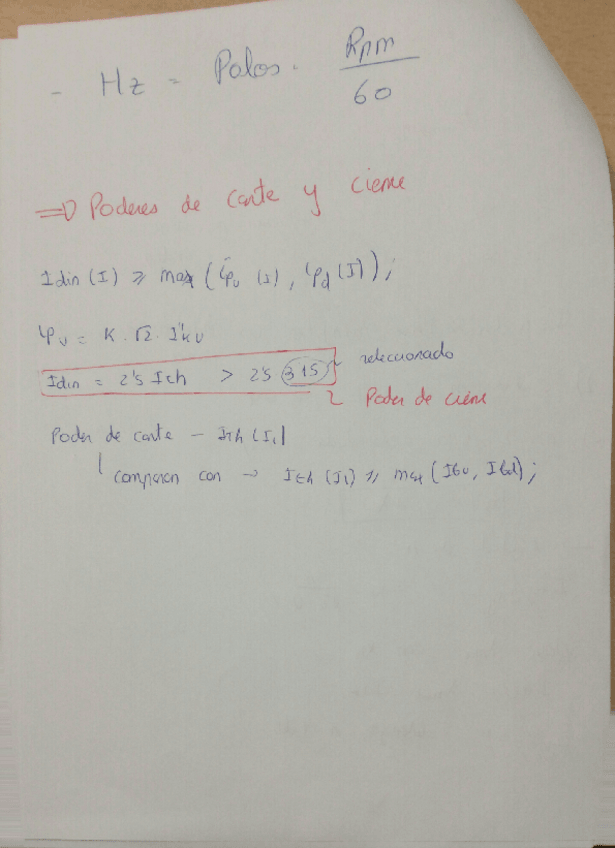 - Hz = Polos · Rpm/60
=> Poderes de corte y cierre
Idin (I) ≥ max (ipu (I), ipd (I));
ipu = K · √2 · I'ku
Idin = 2'5 Ith > 2'5 315 seleccionado
Poder de cierre
Poder de corte - Ith (I1)
comparan con → Ith (I1) ≥ max (Ibu, Ibd);